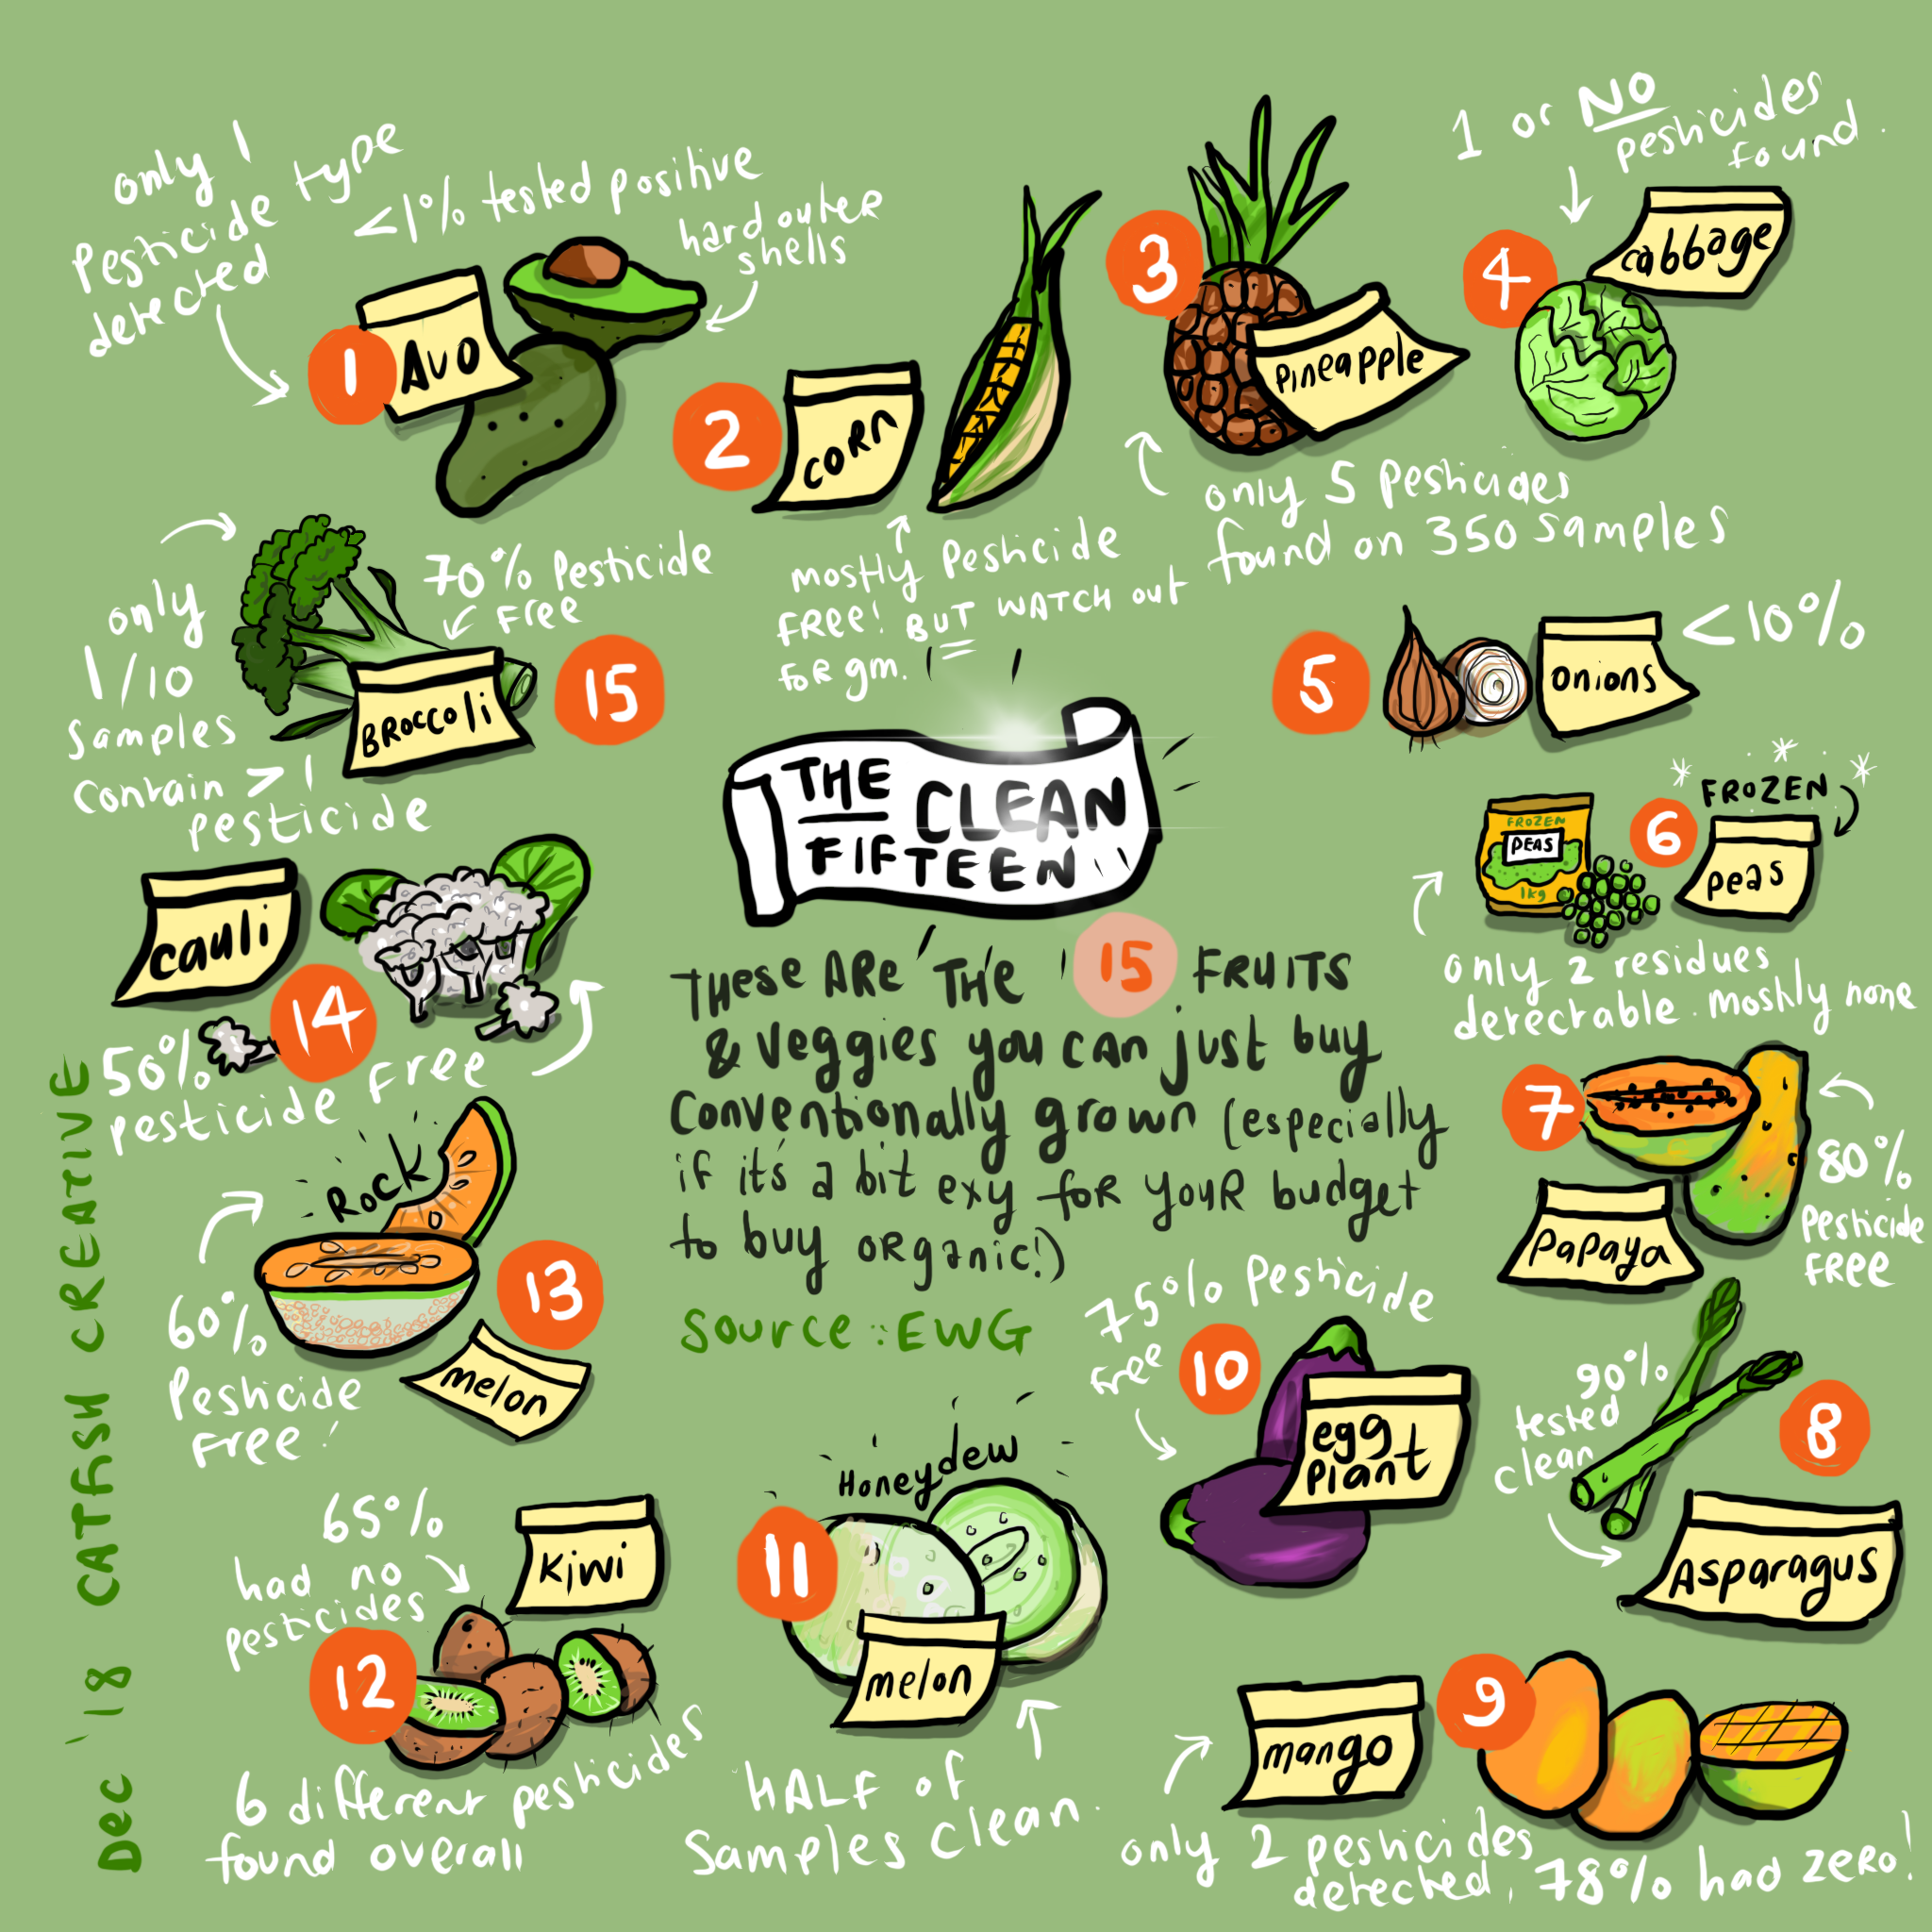 only 1
pesticide type
detected
<1% tested positive
hard outer
shells
1
AVO
2
CORN
mostly Pesticide
FREE! BUT WATCH out
FOR gm.
3
Pineapple
only 5 pesticides
found on 350 samples
1 or NO
pesticides
found.
4
cabbage
5
onions
<10%
6
FROZEN
peas
FROZEN
PEAS
1kg
only 2 residues
detectable. mostly none
7
Papaya
80%
Pesticide
FREE
90%
tested
clean
8
Asparagus
9
mango
only 2 pesticides
detected, 78% had zero!
75% Pesticide
free
10
egg
Plant
Honeydew
11
melon
HALF of
Samples clean.
65%
had no
pesticides
Kiwi
12
6 different pesticides
found overall
Rock
13
melon
60%
Pesticide
Free!
cauli
14
50%
pesticide free
only
1/10
Samples
Contain > 1
pesticide
70% Pesticide
Free
BROCColi
15
THE CLEAN
FIFTEEN
THese ARe THe 15 FRUITS
& veggies you can just buy
Conventionally grown (especially
if it's a bit exy for your budget
to buy organic!)
Source: EWG
Dec '18 CATfiSH CREATIVE